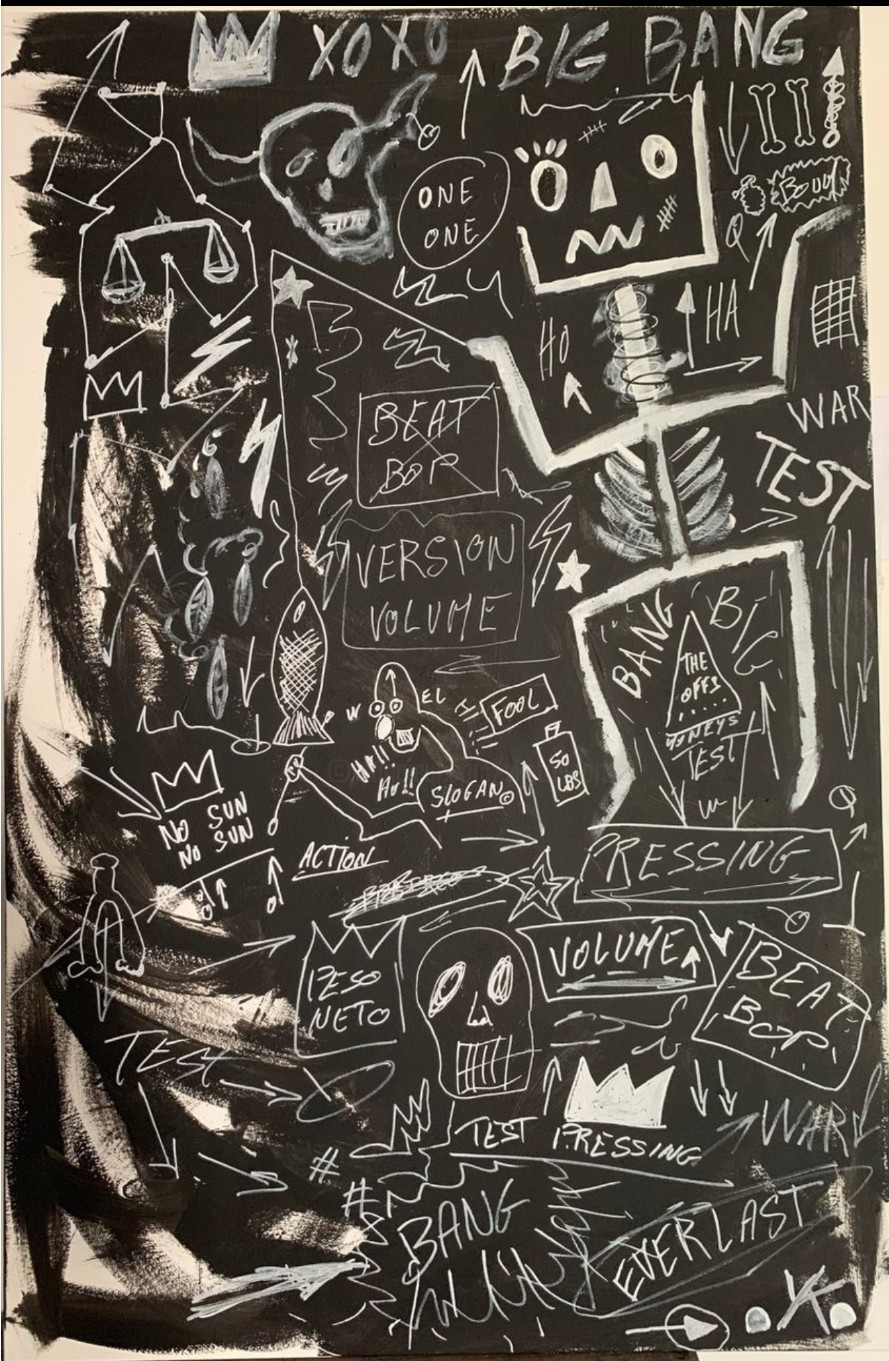 XOXO BIG BANG
ONE
ONE
HO
HA
BEAT
BOP
WAR
TEST
VERSION
VOLUME
BANG
BIG
THE
OFFS
TEST
W
EL
FOOL
HA!!
HA!!
SLOGAN©
50
LBS
NO SUN
NO SUN
ACTION
PRESSING
PESO
NETO
VOLUME
BEAT
BOP
TEST
TEST PRESSING
WAR
#
#
BANG
EVERLAST